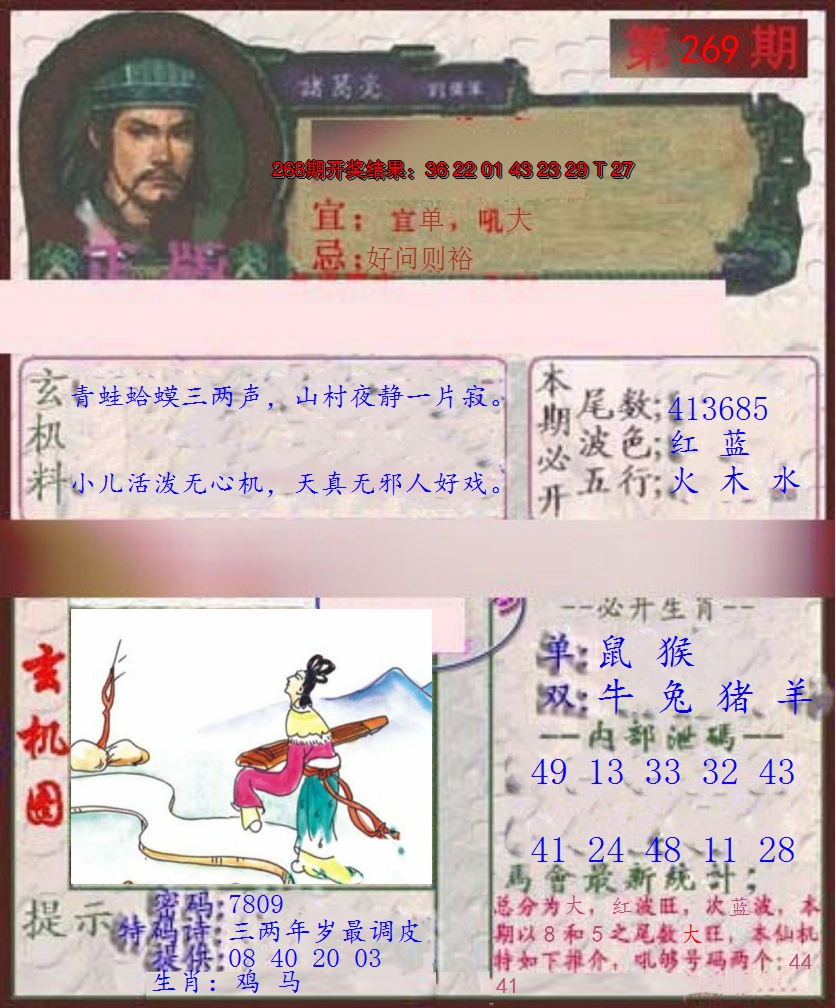 第 269 期
諸葛亮
268期开奖结果：36 22 01 43 23 29 T 27
宜：宜单，吼大
忌：好问则裕
正版
玄机料
青蛙蛤蟆三两声，山村夜静一片寂。
小儿活泼无心机，天真无邪人好戏。
本期必开
尾数：413685
波色：红 蓝
五行：火 木 水
玄机图
--必开生肖--
单：鼠 猴
双：牛 兔 猪 羊
--内部泄碼--
49 13 33 32 43
41 24 48 11 28
馬會最新統計；
总分为大，红波旺，次蓝波，本
期以 8 和 5 之尾数大旺，本仙机
特如下推介，吼够号码两个：44
41
提示
密码：7809
特码诗：三两年岁最调皮
提供：08 40 20 03
生肖：鸡 马